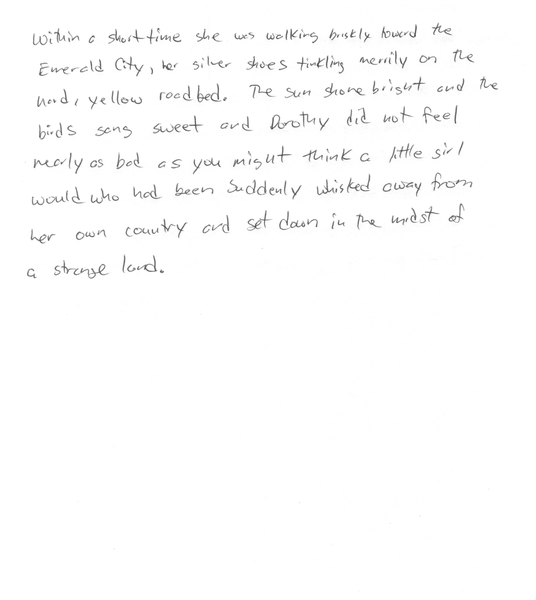 Within a short time she was walking briskly toward the
Emerald City, her silver shoes tinkling merrily on the
hard, yellow roadbed. The sun shone bright and the
birds sang sweet and Dorothy did not feel
nearly as bad as you might think a little girl
would who had been suddenly whisked away from
her own country and set down in the midst of
a strange land.